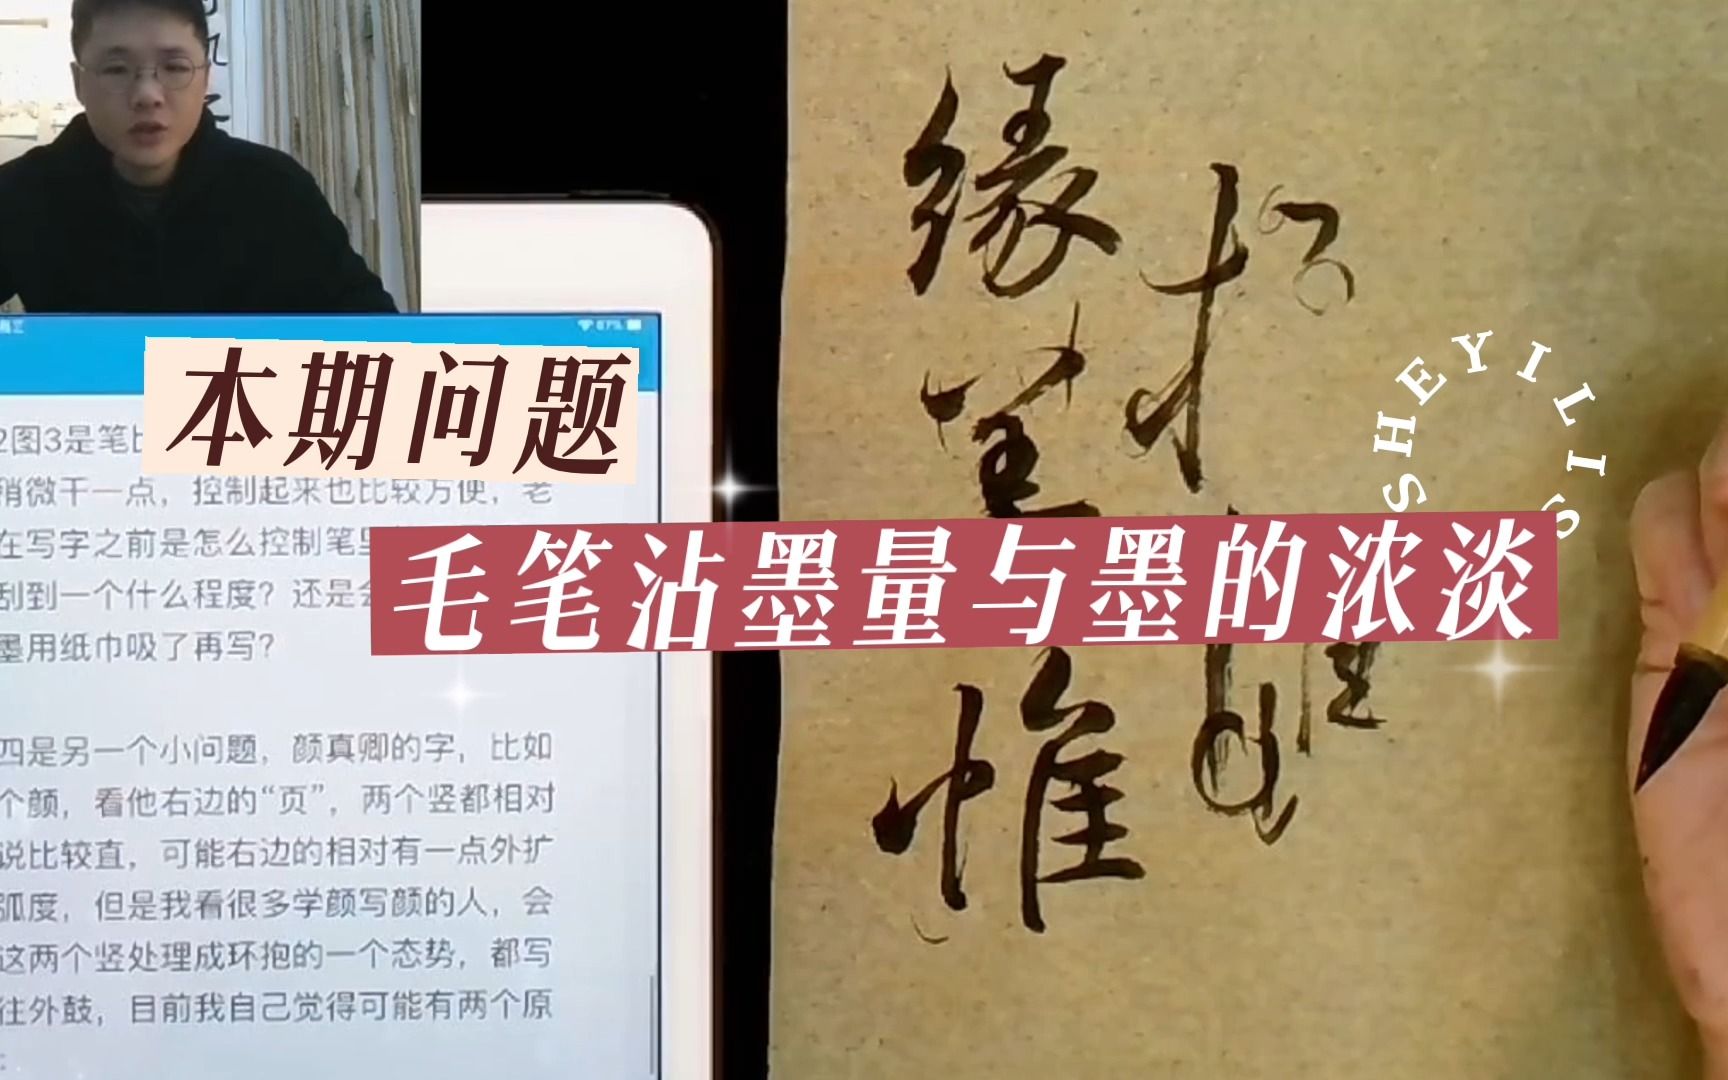 本期问题
毛笔沾墨量与墨的浓淡
SHEYILIS
87%
2图3是笔比
稍微干一点，控制起来也比较方便，老
在写字之前是怎么控制笔里
刮到一个什么程度？还是会
墨用纸巾吸了再写？
四是另一个小问题，颜真卿的字，比如
个颜，看他右边的“页”，两个竖都相对
说比较直，可能右边的相对有一点外扩
弧度，但是我看很多学颜写颜的人，会
这两个竖处理成环抱的一个态势，都写
往外鼓，目前我自己觉得可能有两个原
缘
笔
惟